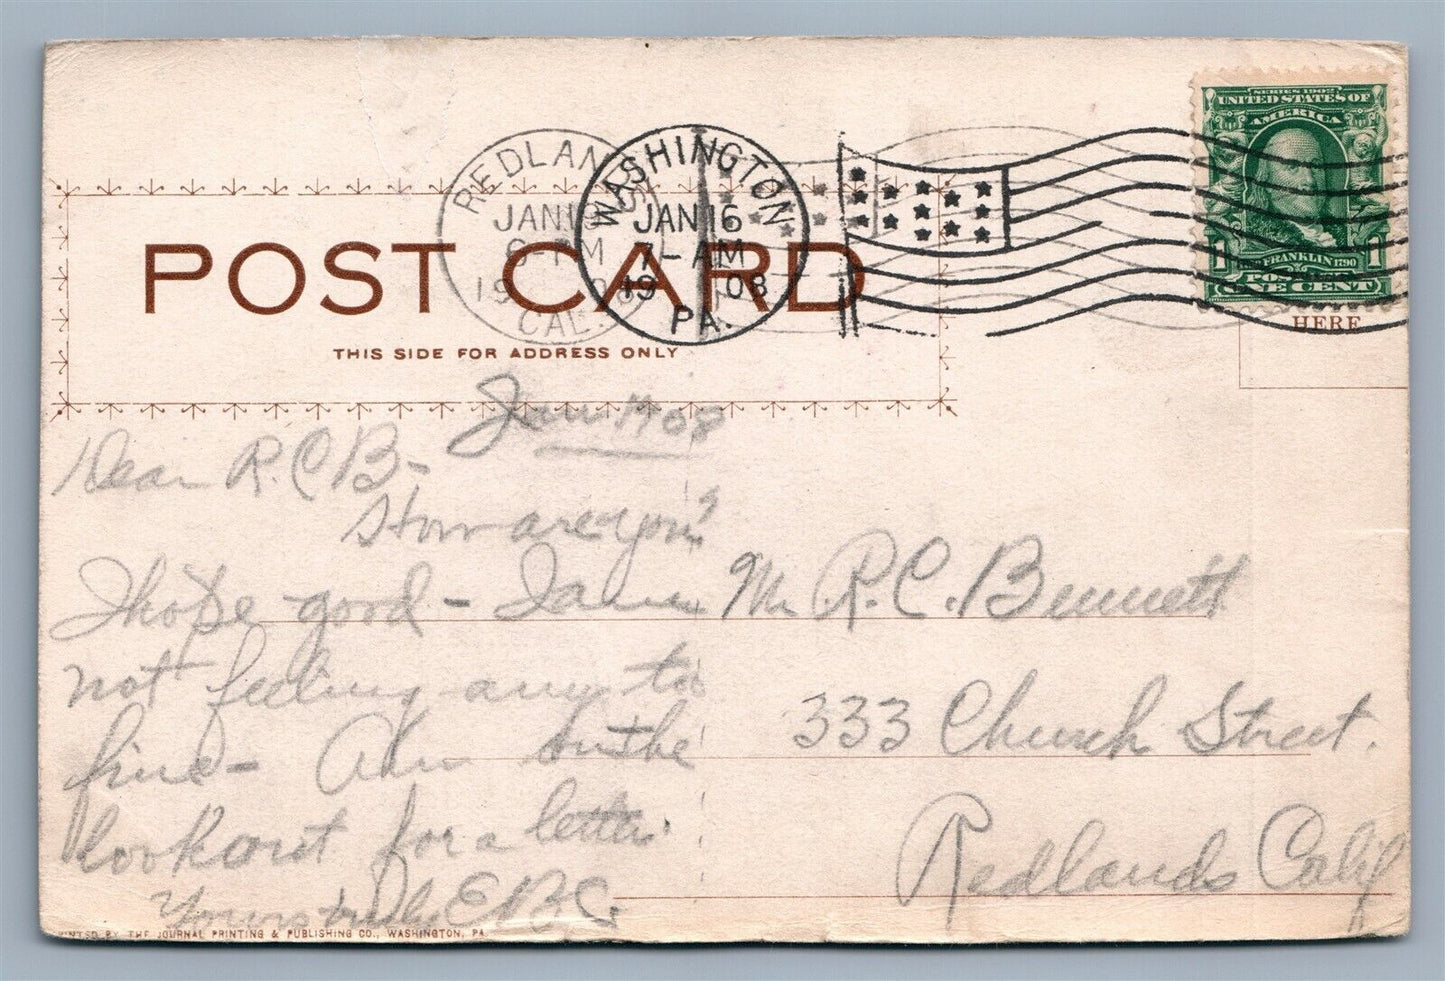 SERIES 1902
UNITED STATES OF
AMERICA
FRANKLIN 1790
1 1
ONE CENT
HERE
REDLANDS
JAN
CAL.
WASHINGTON
JAN 16
7-AM
19 08
PA.
POST CARD
THIS SIDE FOR ADDRESS ONLY
Jan 08
Dear R.C B-
How are you?
I hope good - I am
not feeling any to
fine - Am on the
lookout for a letter
Yours truly
Mr R. C. Bennett
333 Church Street.
Redlands Calif
PRINTED BY THE JOURNAL PRINTING & PUBLISHING CO., WASHINGTON, PA